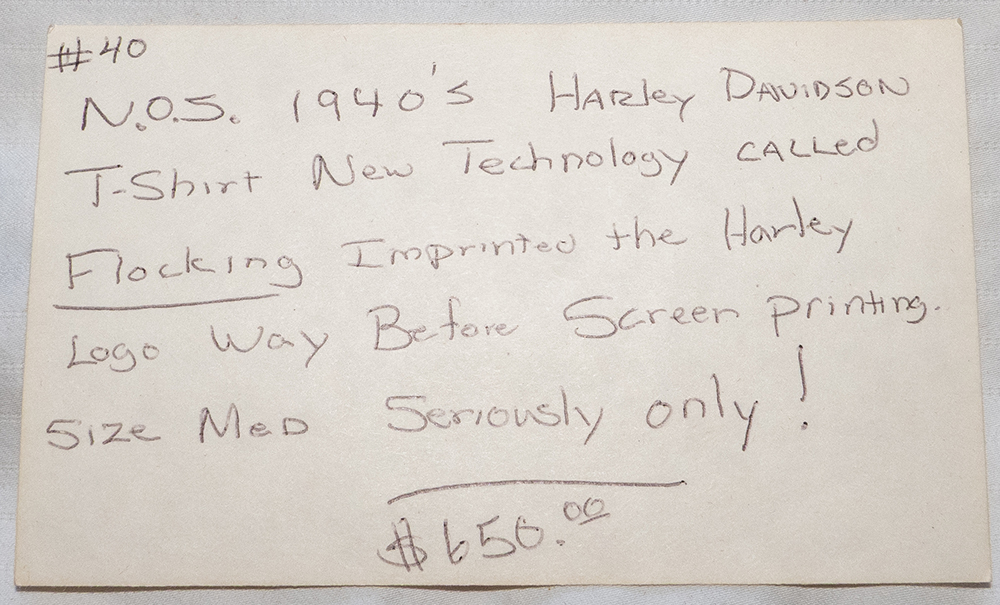 #40
N.O.S. 1940's Harley Davidson
T-Shirt New Technology called
Flocking Imprinted the Harley
Logo Way Before Screen printing.
Size Med Seriously only!
$650.00